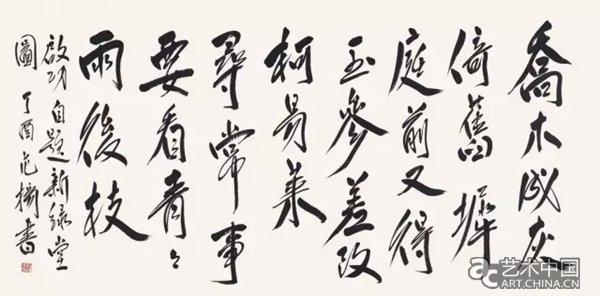 喬木成灰
倚舊墀
庭前又得
玉參差改
柯易葉
尋常事
要看青々
雨後枝
啟功自題新綠堂
圖 丁酉 范揚書
艺术中国
ART.CHINA.CN